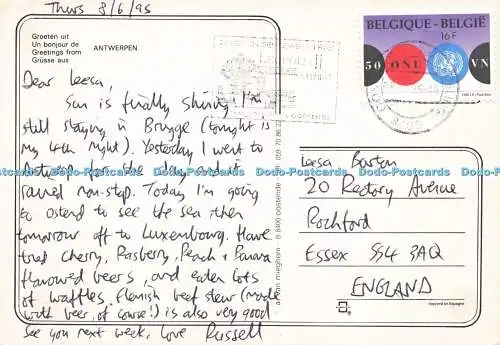 Thurs 8/6/95
Groeten uit
Un bonjour de
Greetings from
Grüsse aus
ANTWERPEN
Dear Leesa,
Sun is finally shining! I'm
still staying in Brugge (tonight is
my 4th night). Yesterday I went to
Antwerp for the day and it
rained non-stop. Today I'm going
to ostend to see the sea then
tomorrow off to Luxembourg. Have
tried Cherry, Rasberry, Peach + Banana
flavoured beers, and eaten lots
of waffles. Flemish beef stew (made
with beer, of course!) is also very good
See you next week, Love Russell
BELGIQUE-BELGIË
16F
50 ONU VN
Leesa Barton
20 Rectory Avenue
Rochford
Essex SS4 3AQ
ENGLAND
mieghem B 8400 oostende 059 70.86.22
Dodo-Postcards